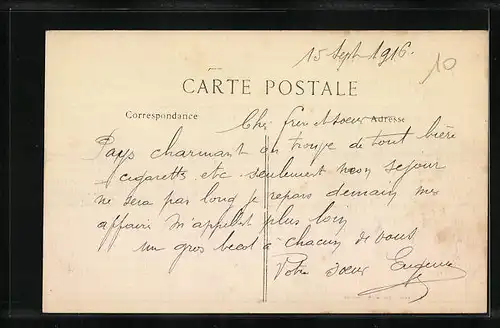 15 Sept 1916.
10
CARTE POSTALE
Correspondance
Adresse
Chs frere et soeur
Pays charmant on trouve de tout bière
cigarette etc seulement mon sejour
ne sera pas long je repars demain mes
affaires m'appellent plus loin
un gros becot à chacun de vous
Votre soeur Eugenie